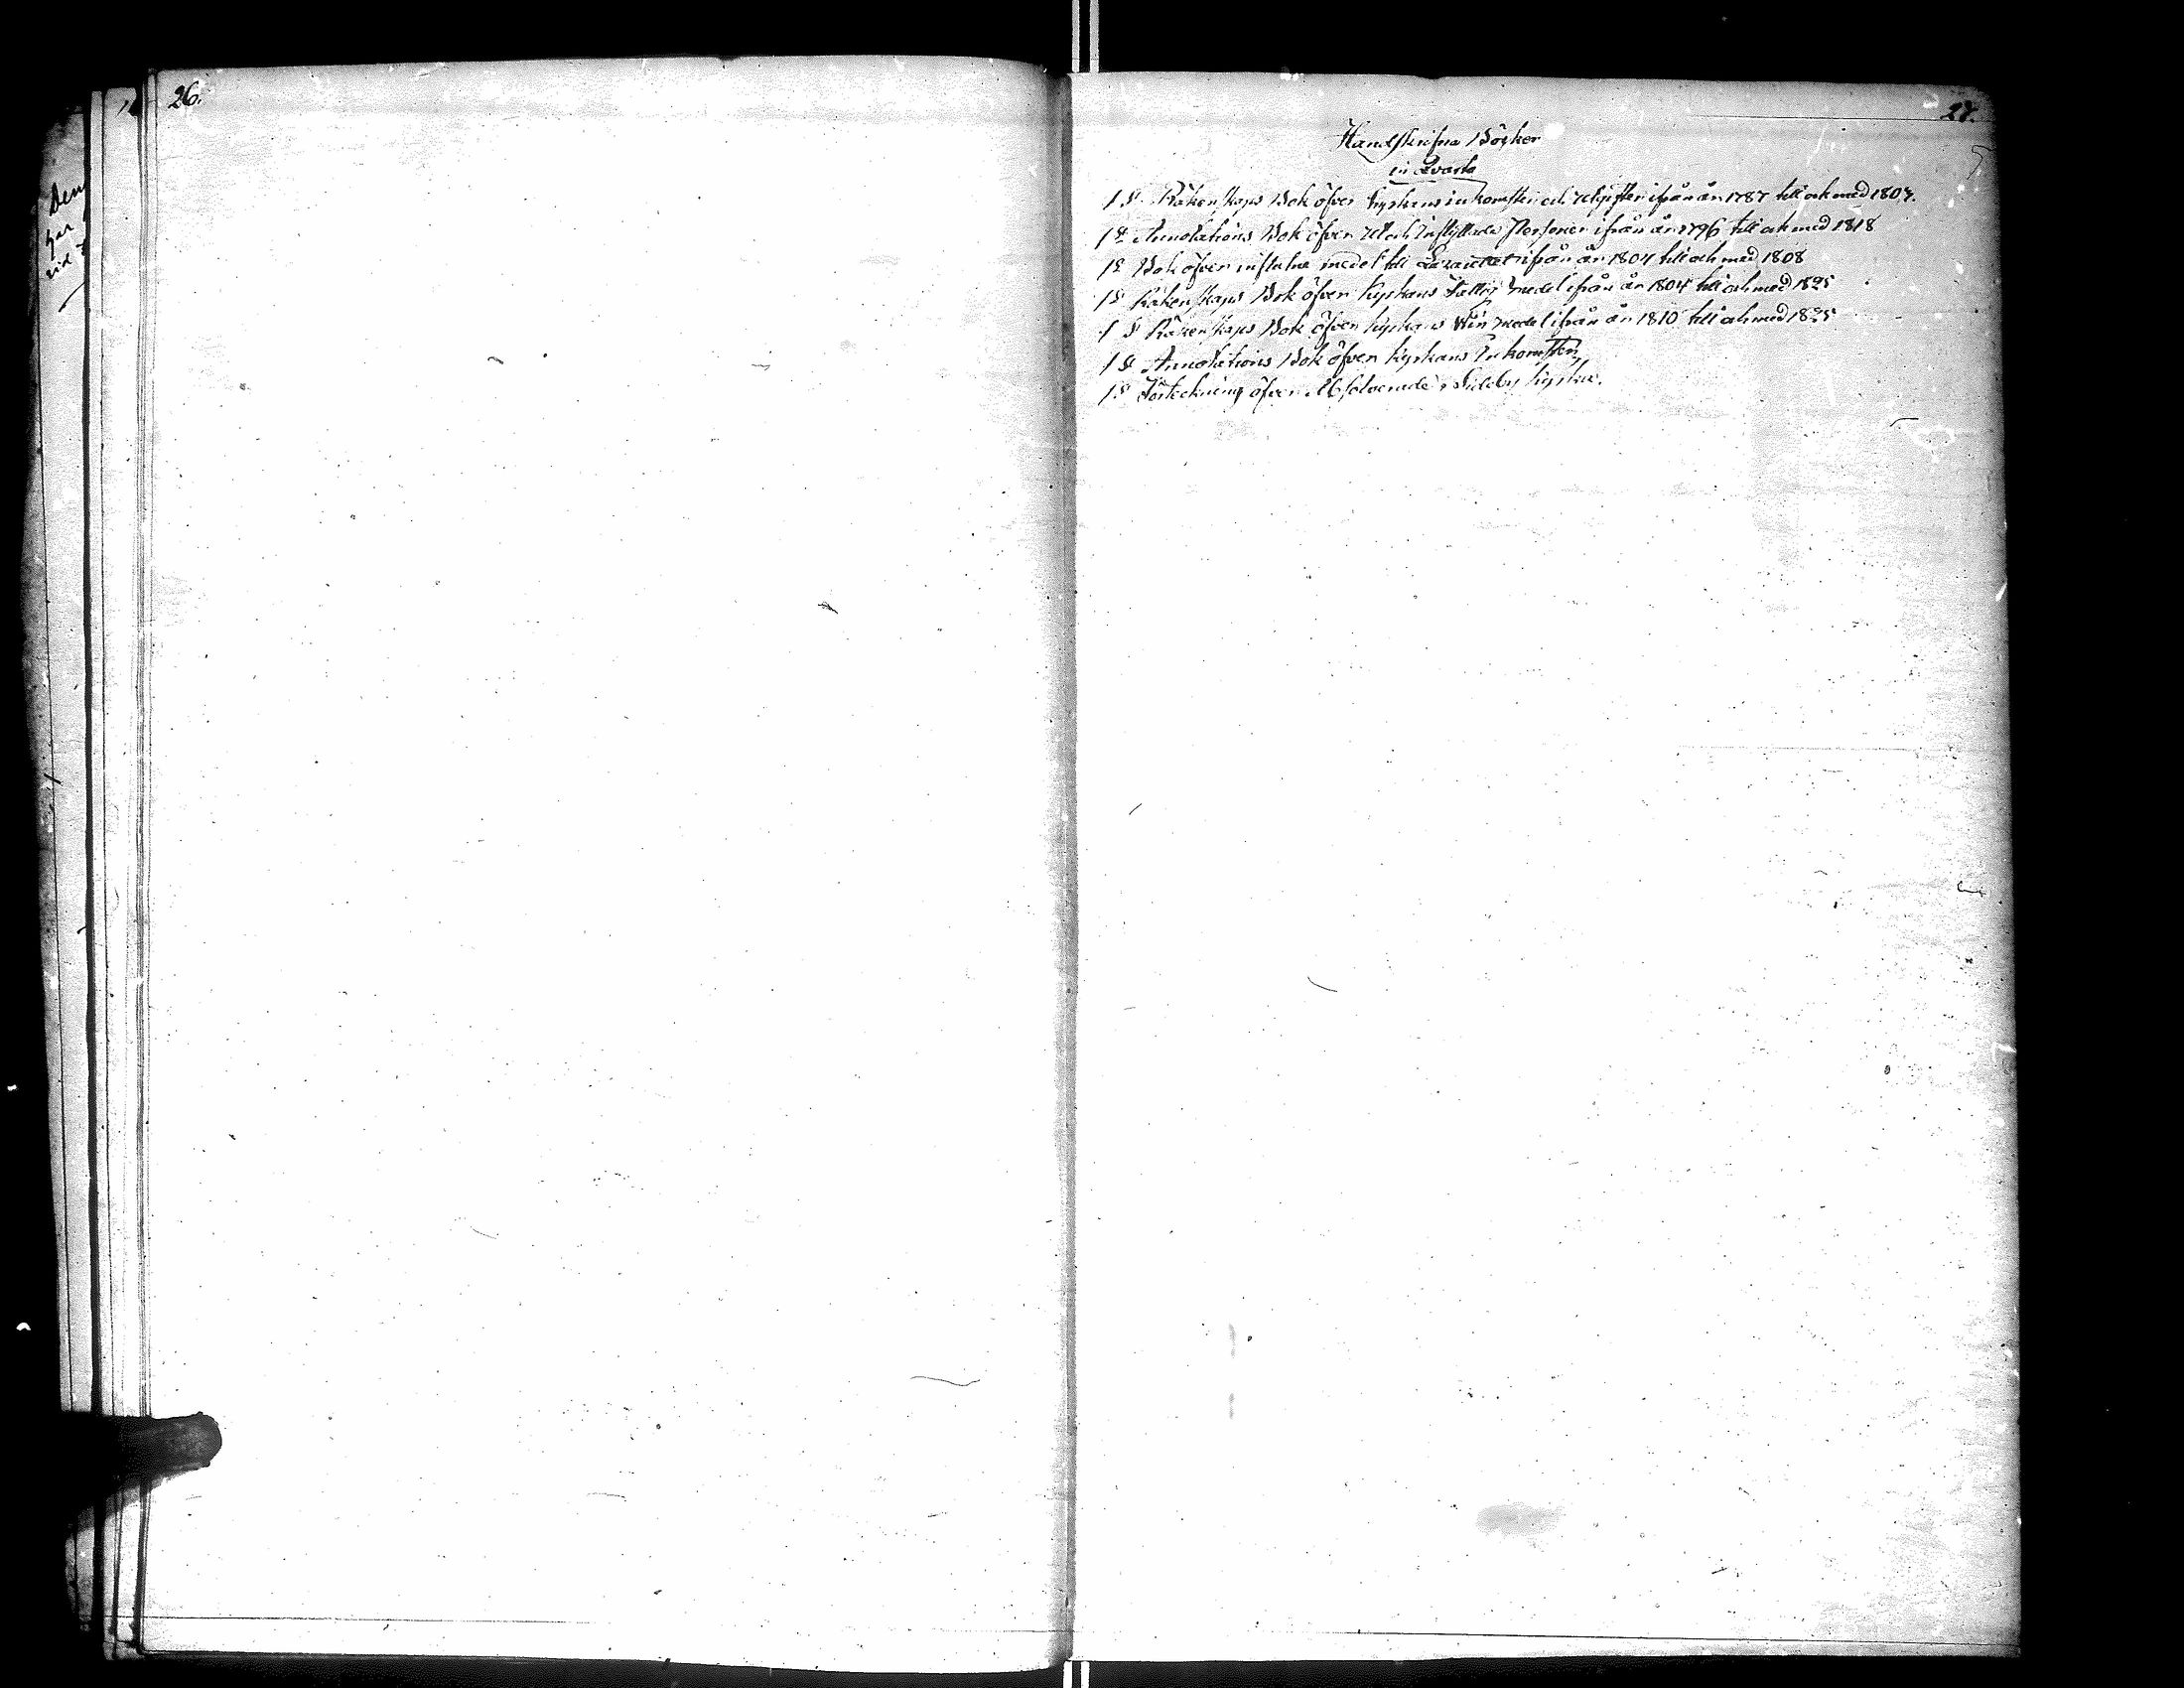 26.
27.
Handskrifna Böcker
in Qvarto
1 St Räkenskaps Bok öfver Kyrkans inkomster och Utgifter ifrån år 1787 till och med 1807.
1 St Annotations Bok öfver Ut och Inflyttade Personer ifrån år 1796 till och med 1818
1 St Bok öfver influtne medel till Lazarettet ifrån år 1804 till och med 1808
1 St Räkenskaps Bok öfver Kyrkans Fattig medel ifrån år 1804 till och med 1825
1 St Räkenskaps Bok öfver Kyrkans Win medel ifrån år 1810 till och med 1825
1 St Annotations Bok öfver Kyrkans Inkomster
1 St Förteckning öfver Absolverade i Sideby Kyrka.
Den